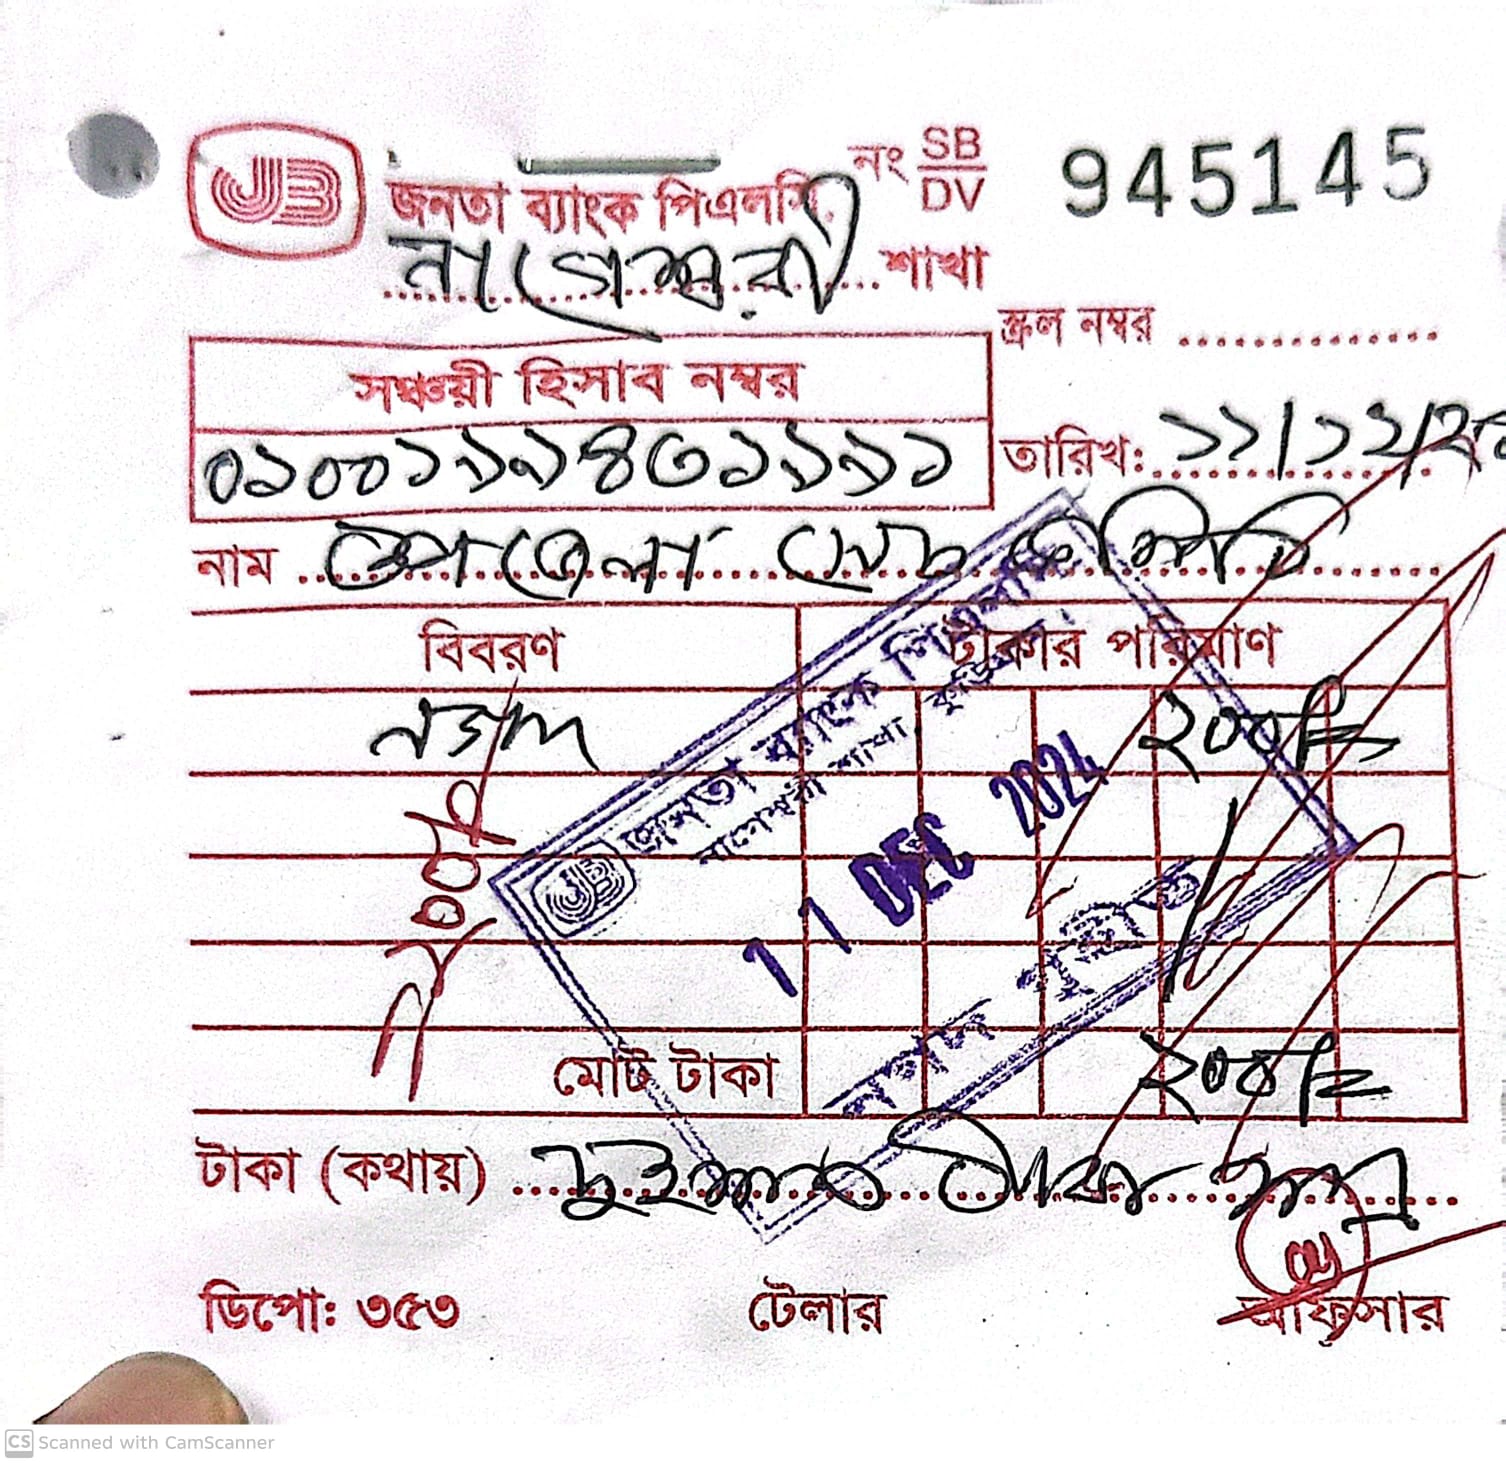 JB
জনতা ব্যাংক পিএলসি.
নং SB/DV 945145
নাগেশ্বরী শাখা
স্ক্রল নম্বর
সঞ্চয়ী হিসাব নম্বর
তারিখ: ১১/১২/২৪
নাম
বিবরণ টাকার পরিমাণ
নগদ ২০০/=
জনতা ব্যাংক পিএলসি
নাগেশ্বরী শাখা, কুড়িগ্রাম।
11 DEC 2024
নগদ গৃহীত
২০০/=
মোট টাকা ২০০/=
টাকা (কথায়) দুইশত টাকা মাত্র
ডিপো: ৩৫৩ টেলার অফিসার
CS Scanned with CamScanner